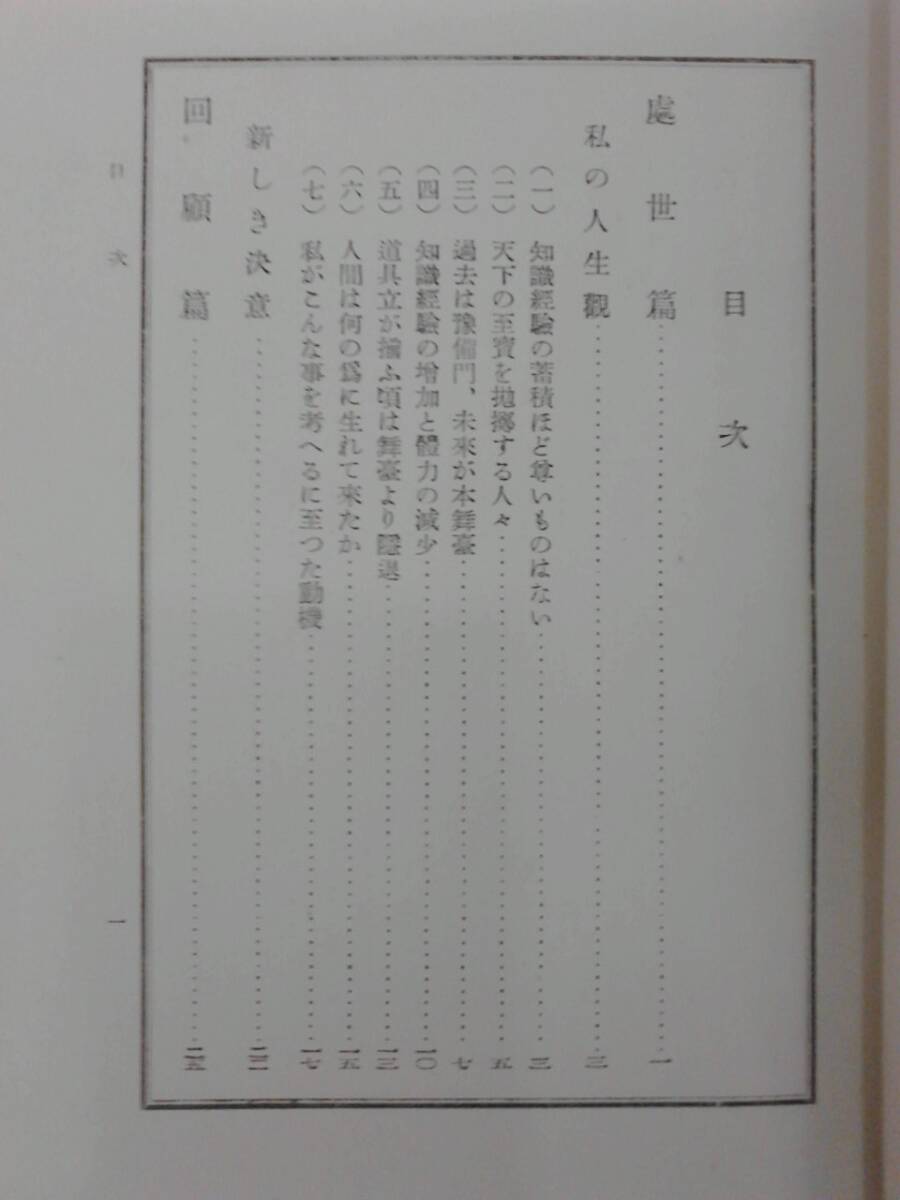 目次
處世篇……一
私の人生觀……三
(一) 知識經驗の蓄積ほど尊いものはない……三
(二) 天下の至寶を拋擲する人々……五
(三) 過去は豫備門、未來が本舞臺……七
(四) 知識經驗の增加と體力の減少……一〇
(五) 道具立が揃ふ頃は舞臺より隱退……一三
(六) 人間は何の爲に生れて來たか……一五
(七) 私がこんな事を考へるに至つた動機……一七
新しき決意……
回顧篇……二五
目次
一